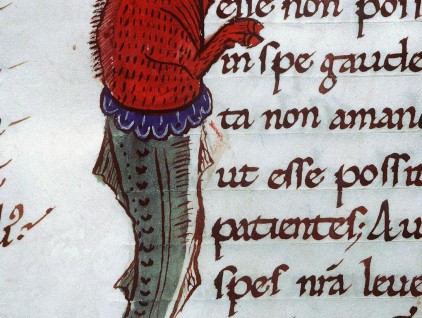 esse non poss
in spe gaude
ta non aman
ut esse possu
patientes; Au
spes nr̄a leue